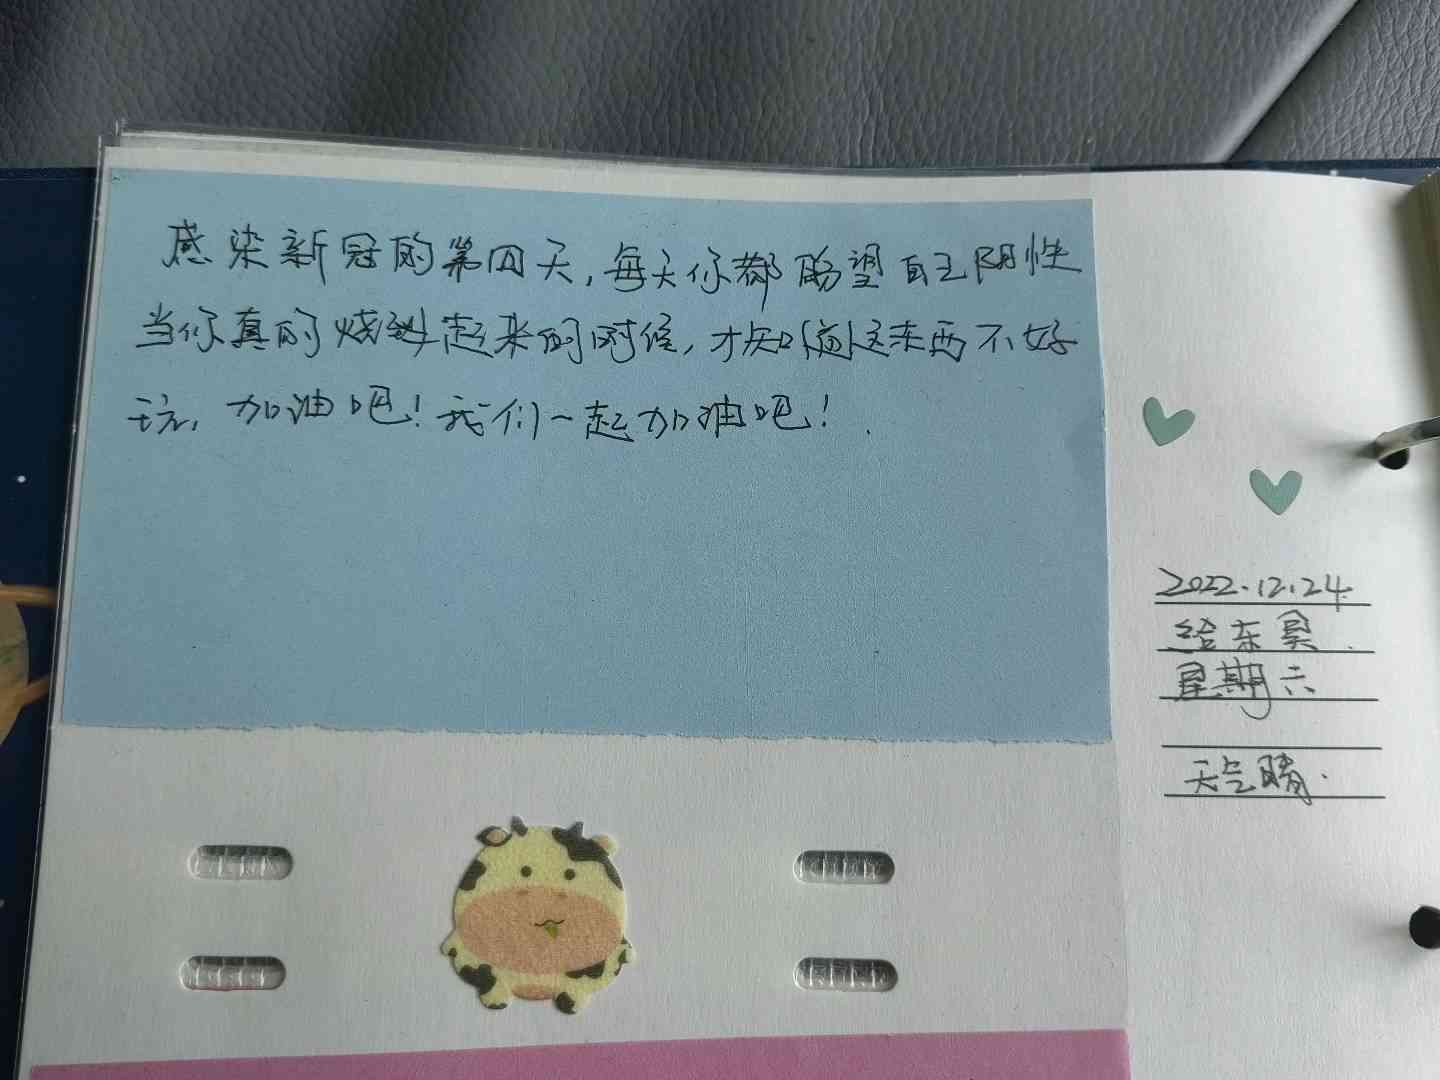 感染新冠的第四天,每天你都盼望自己阴性
当你真的烧起来的时候,才知道这东西不好
玩,加油吧!我们一起加油吧!
2022.12.24
给东昊.
星期六
天气晴.